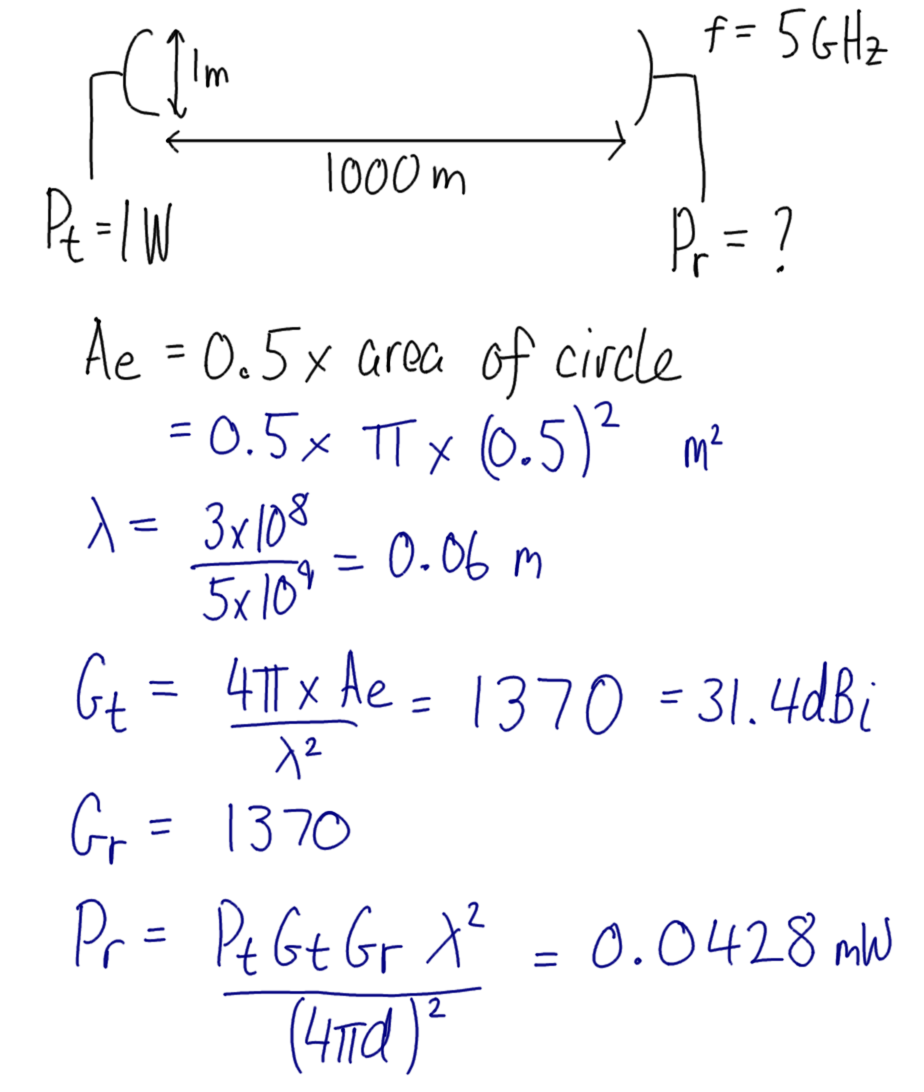 f = 5GHz
1m
1000 m
Pt = 1W
Pr = ?
Ae = 0.5 x area of circle
= 0.5 x π x (0.5)² m²
λ = 3x10⁸ / 5x10⁹ = 0.06 m
Gt = 4π x Ae / λ² = 1370 = 31.4dBi
Gr = 1370
Pr = Pt Gt Gr λ² / (4πd)² = 0.0428 mW